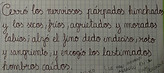 Cerró los nervosos párpados hinchados
y los secos, fríos, agrietados y morados
labios; alzó el fino dedo indeciso, roto
y sangriento y encogió los lastimados
hombros caídos